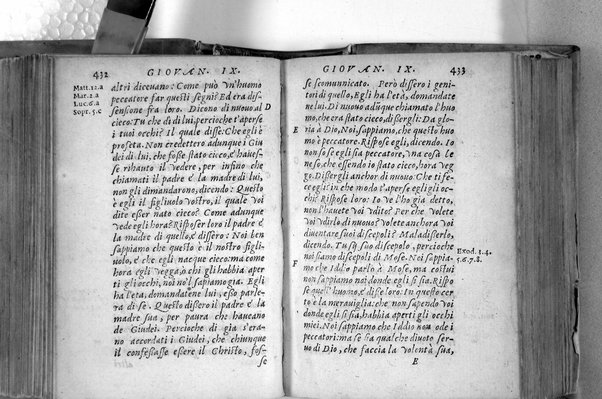 432
GIOVAN. IX.
Matt.12.a
Mar.2.a
Luc.6.a
Sopr.5.c
altri diceuano: Come può vn'huomo
peccatore far questi segni? Ed era dis-
sensione fra loro. Dicono di nuouo al
D
cieco: Tu che di di lui, perche t'aperse
i tuoi occhi? Il quale disse: Che egli è
profeta. Non credettero adunque i Giu
dei di lui, che fosse stato cieco, & hauess-
se rihauto il vedere, per infino che
chiamati il padre & la madre di lui,
non gli dimandarono, dicendo: Questo
è egli il figliuolo vostro, il quale voi
dite esser nato cieco? Come adunque
vede egli hora? Risposer loro il padre &
la madre di quello, & disero: Noi ben
sappiamo che questo è il nostro figli-
uolo, & che egli nacque cieco: ma come
hora egli vegga, o chi gli habbia aper
ti gli occhi, noi no'l sapiamo gia. Egli
ha l'eta, domandatene lui, esso parle-
ra di se. Questo dissero il padre & la
madre sua, per paura che haueano
de Giudei. Percioche di gia s'era-
no accordati i Giudei, che chiunque
il confessasse essere il Christo, fos-
se
GIOVAN. IX.
433
se scomunicato. Però dissero i geni-
tori di quello, Egli ha l'età, domandate
ne lui. Di nuouo adūque chiamato l'huo
mo, che era stato cieco, dissergli: Da glo
E
ria à Dio, Noi sappiamo, che questo huo
mo è peccatore. Rispose egli, dicendo. Io
non so se egli sia peccatore, vna cosà so
ne so, che essendo io stato cieco, hora veg
go. Dissergli anchor di nuouo: Che ti fe-
ce egli? in che modo t'aperse egli gli oc-
chi? Rispose loro: Io ve l'ho gia detto,
non l'hauete voi vdito? Per che volete
voi vdirlo di nuouo? volete anchora voi
diuentare suoi discepoli? Maladisserlo,
dicendo. Tu sij suo discepolo, percioche
noi siamo discepoli di Mose. Noi sappia-
Exod.14.
5.6.7.8.
F
mo che Iddio parlò à Mose, ma costui
non sappiamo noi donde egli si sia. Rispo
se quell'huomo, & disse loro: In questo cer
to è la merauiglia: che non sapendo voi
donde egli si sia, habbia aperti gli occhi
miei. Noi sappiamo che Iddio non ode i
peccatori: ma se egli qualche diuoto ser-
uo di Dio, che faccia la volontà sua,
E